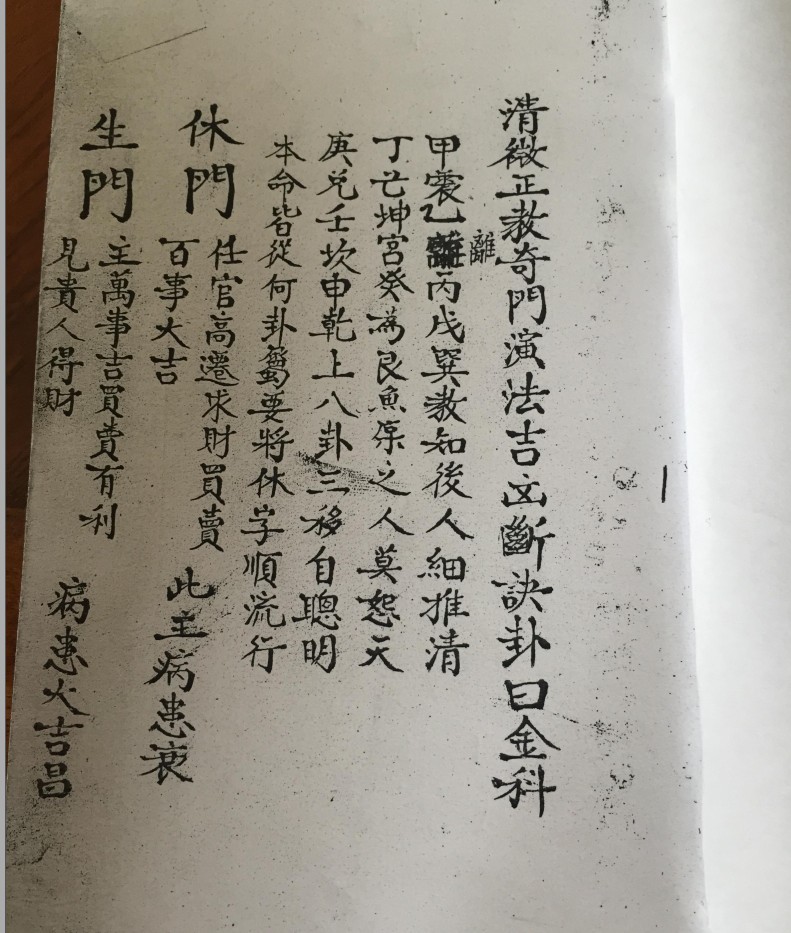 清微正教奇門演法吉凶斷訣卦曰金科
離
甲震乙離丙戌巽教知後人細推清
丁亡坤宮癸為艮魚僳之人莫怨天
庚兌壬坎申乾上八卦三移自聰明
本命皆從何卦屬要將休字順流行
休門
任官高遷求財買賣
百事大吉
此主病患衰
生門
主萬事吉買賣有利
見貴人得財
病患大吉昌